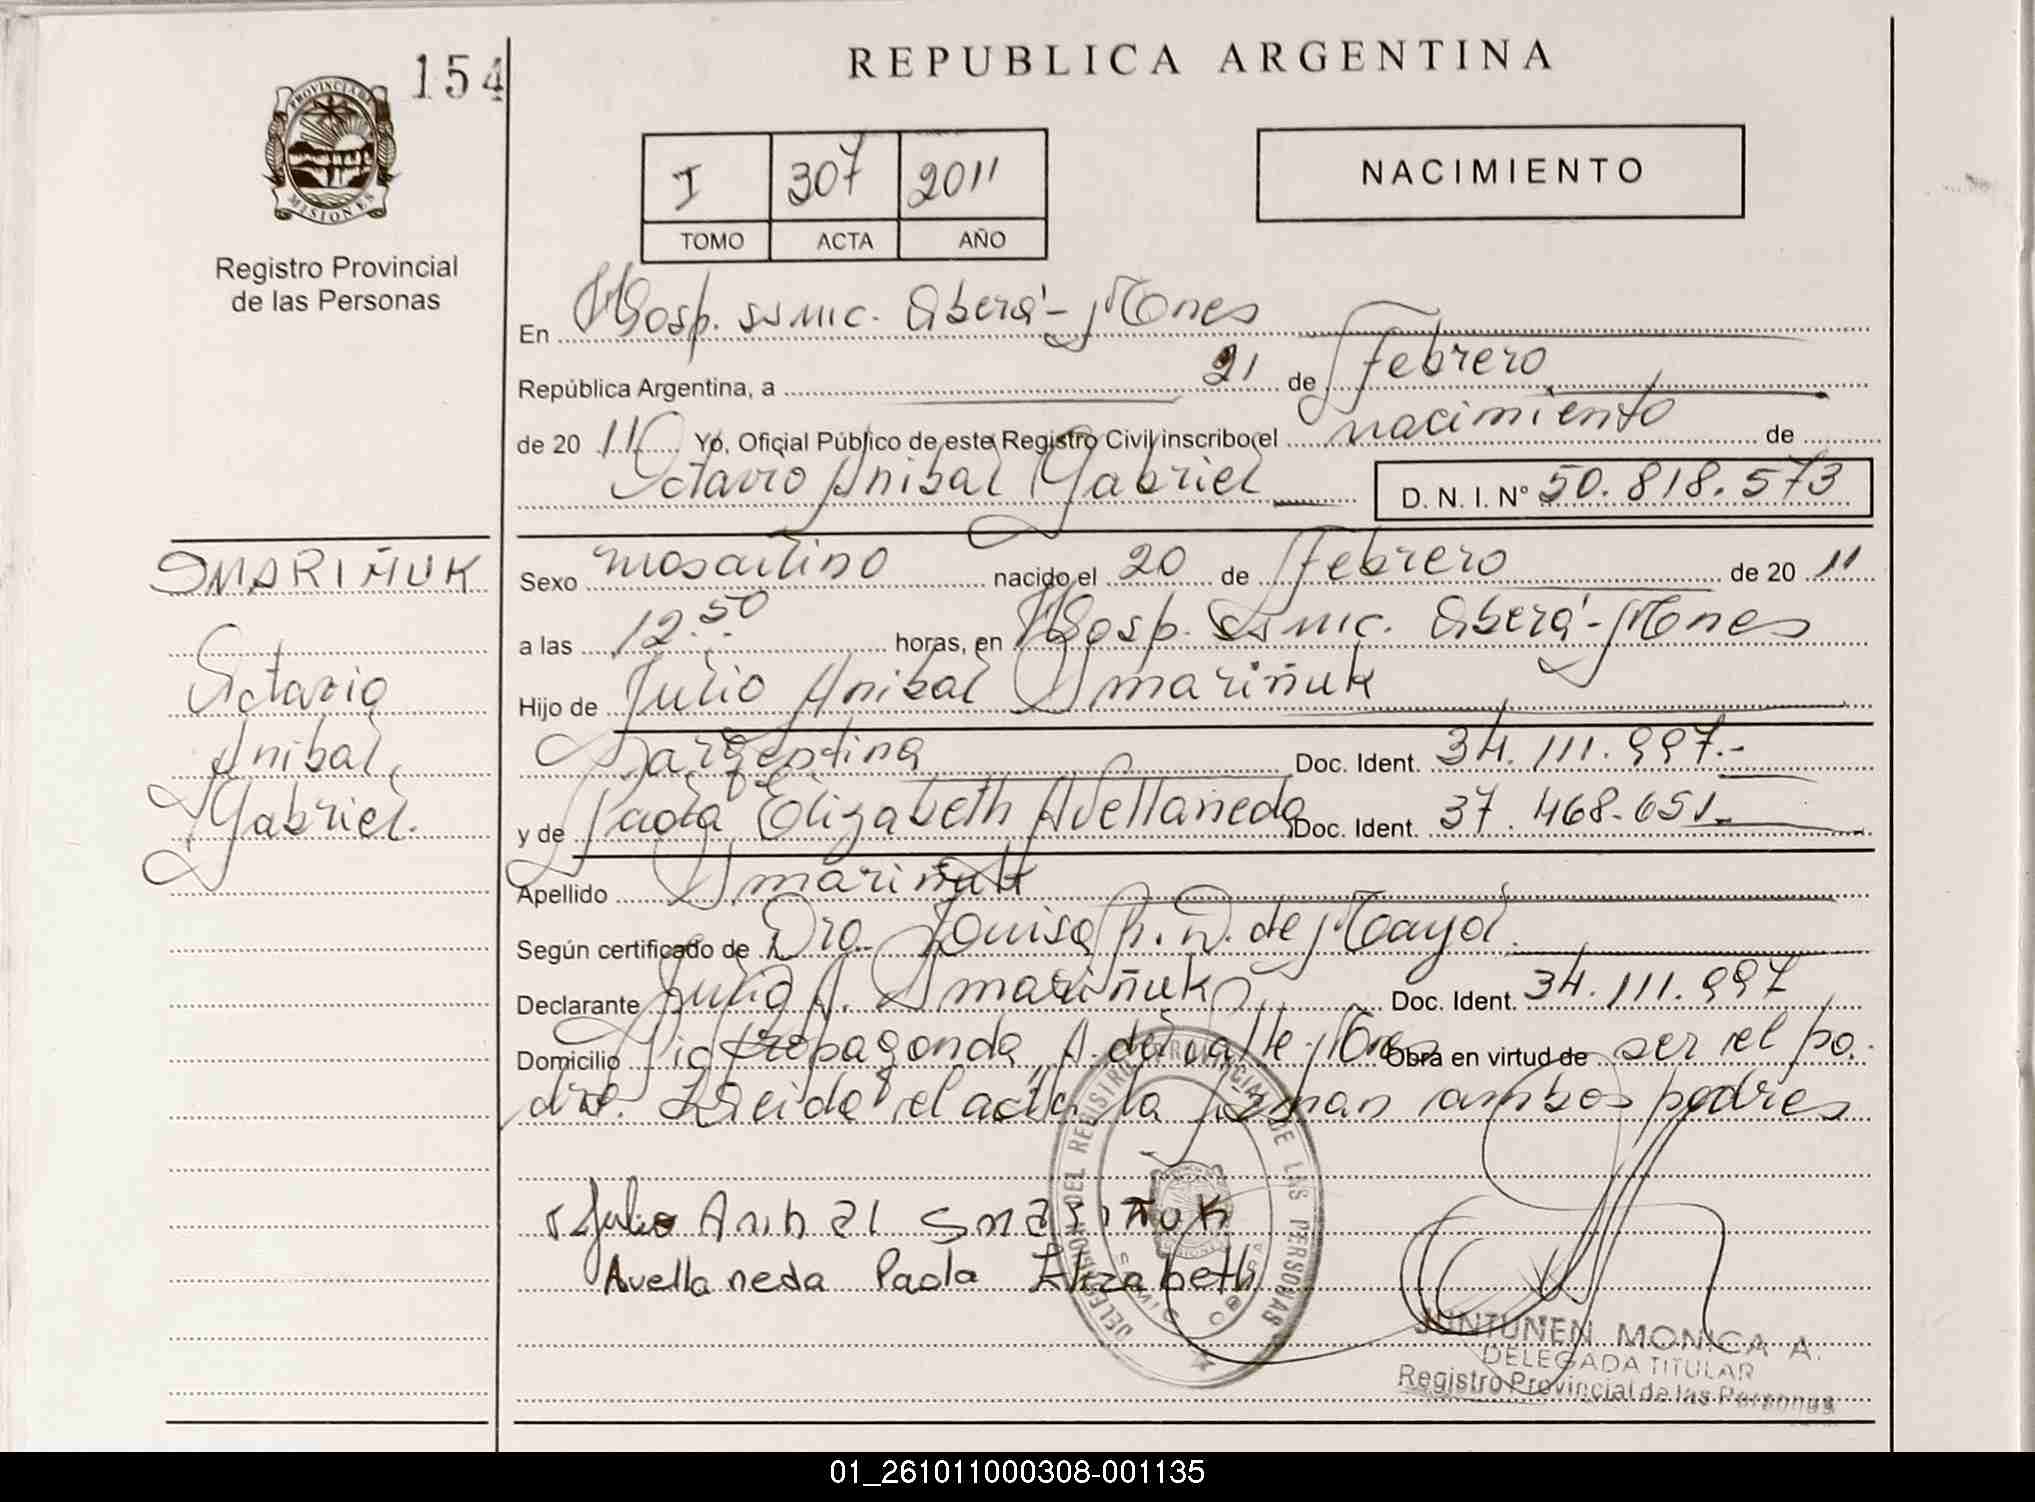 154
REPUBLICA ARGENTINA
PROVINCIA DE
MISIONES
Registro Provincial
de las Personas
I 307 2011
TOMO ACTA AÑO
NACIMIENTO
En Hosp. SSMIC. Oberá - Mnes
República Argentina, a 21 de Febrero
de 20 11 Yo, Oficial Público de este Registro Civil inscribo el nacimiento de
Octavio Anibal Gabriel D. N. I. N° 50.818.573
SMARIÑUK
Octavio
Anibal
Gabriel.
Sexo masculino nacido el 20 de Febrero de 20 11
a las 12.50 horas, en Hosp. SSMIC. Oberá - Mnes
Hijo de Julio Anibal Smariñuk
argentina Doc. Ident. 34.111.997.-
y de Paola Elizabeth Avellaneda Doc. Ident. 37.468.651.-
Apellido Smariñuk
Según certificado de Dra. Louisa R. D. de Moaya
Declarante Julio A. Smariñuk Doc. Ident. 34.111.997
Domicilio Picpropaganda A. del Valle. Mnes Obra en virtud de ser el pa.
dre. Leida el acta la firman ambos padres
Julio Anibal SMARIÑUK
Avellaneda Paola Elizabeth
DELEGACION DEL REGISTRO PROVINCIAL DE LAS PERSONAS
OBERA
JUNTUNEN MONICA A.
DELEGADA TITULAR
Registro Provincial de las Personas
01_261011000308-001135